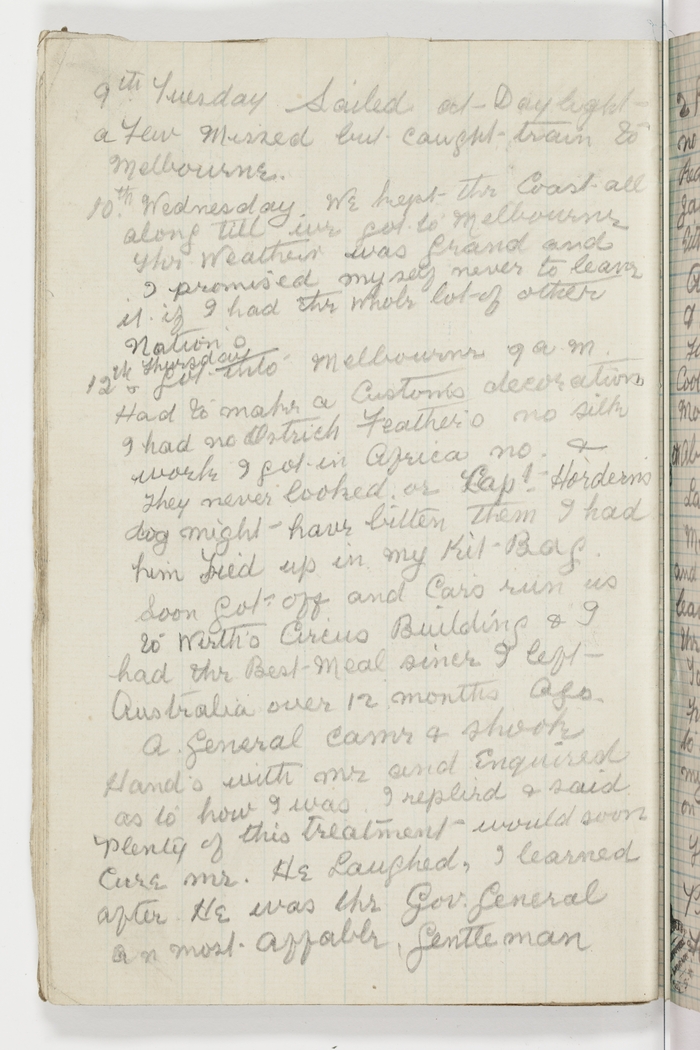 9th Tuesday Sailed at Daylight
a Few Missed but caught train to
Melbourne.
10th Wednesday We kept the Coast all
along till we got to Melbourne
The Weather was Grand and
I promised myself never to leave
it if I had the whole lot of other
Nation's
12th Thursday
& Got into Melbourne 9 a.m.
Had to make a Customs decoration
I had no Ostrich Feathers no silk
work I got in Africa no. &
They never looked. or Capt Horderns
dog might have bitten them I had
him tied up in my Kit-Bag.
Soon Got off and Cars run us
to Wirth's Circus Building & I
had the Best Meal since I left
Australia over 12 months Ago.
A General came & shook
Hand's with me and Enquired
as to how I was. I replied & said
Plenty of this treatment would soon
Cure me. He Laughed, I learned
after He was the Gov. General
an most affable, Gentleman